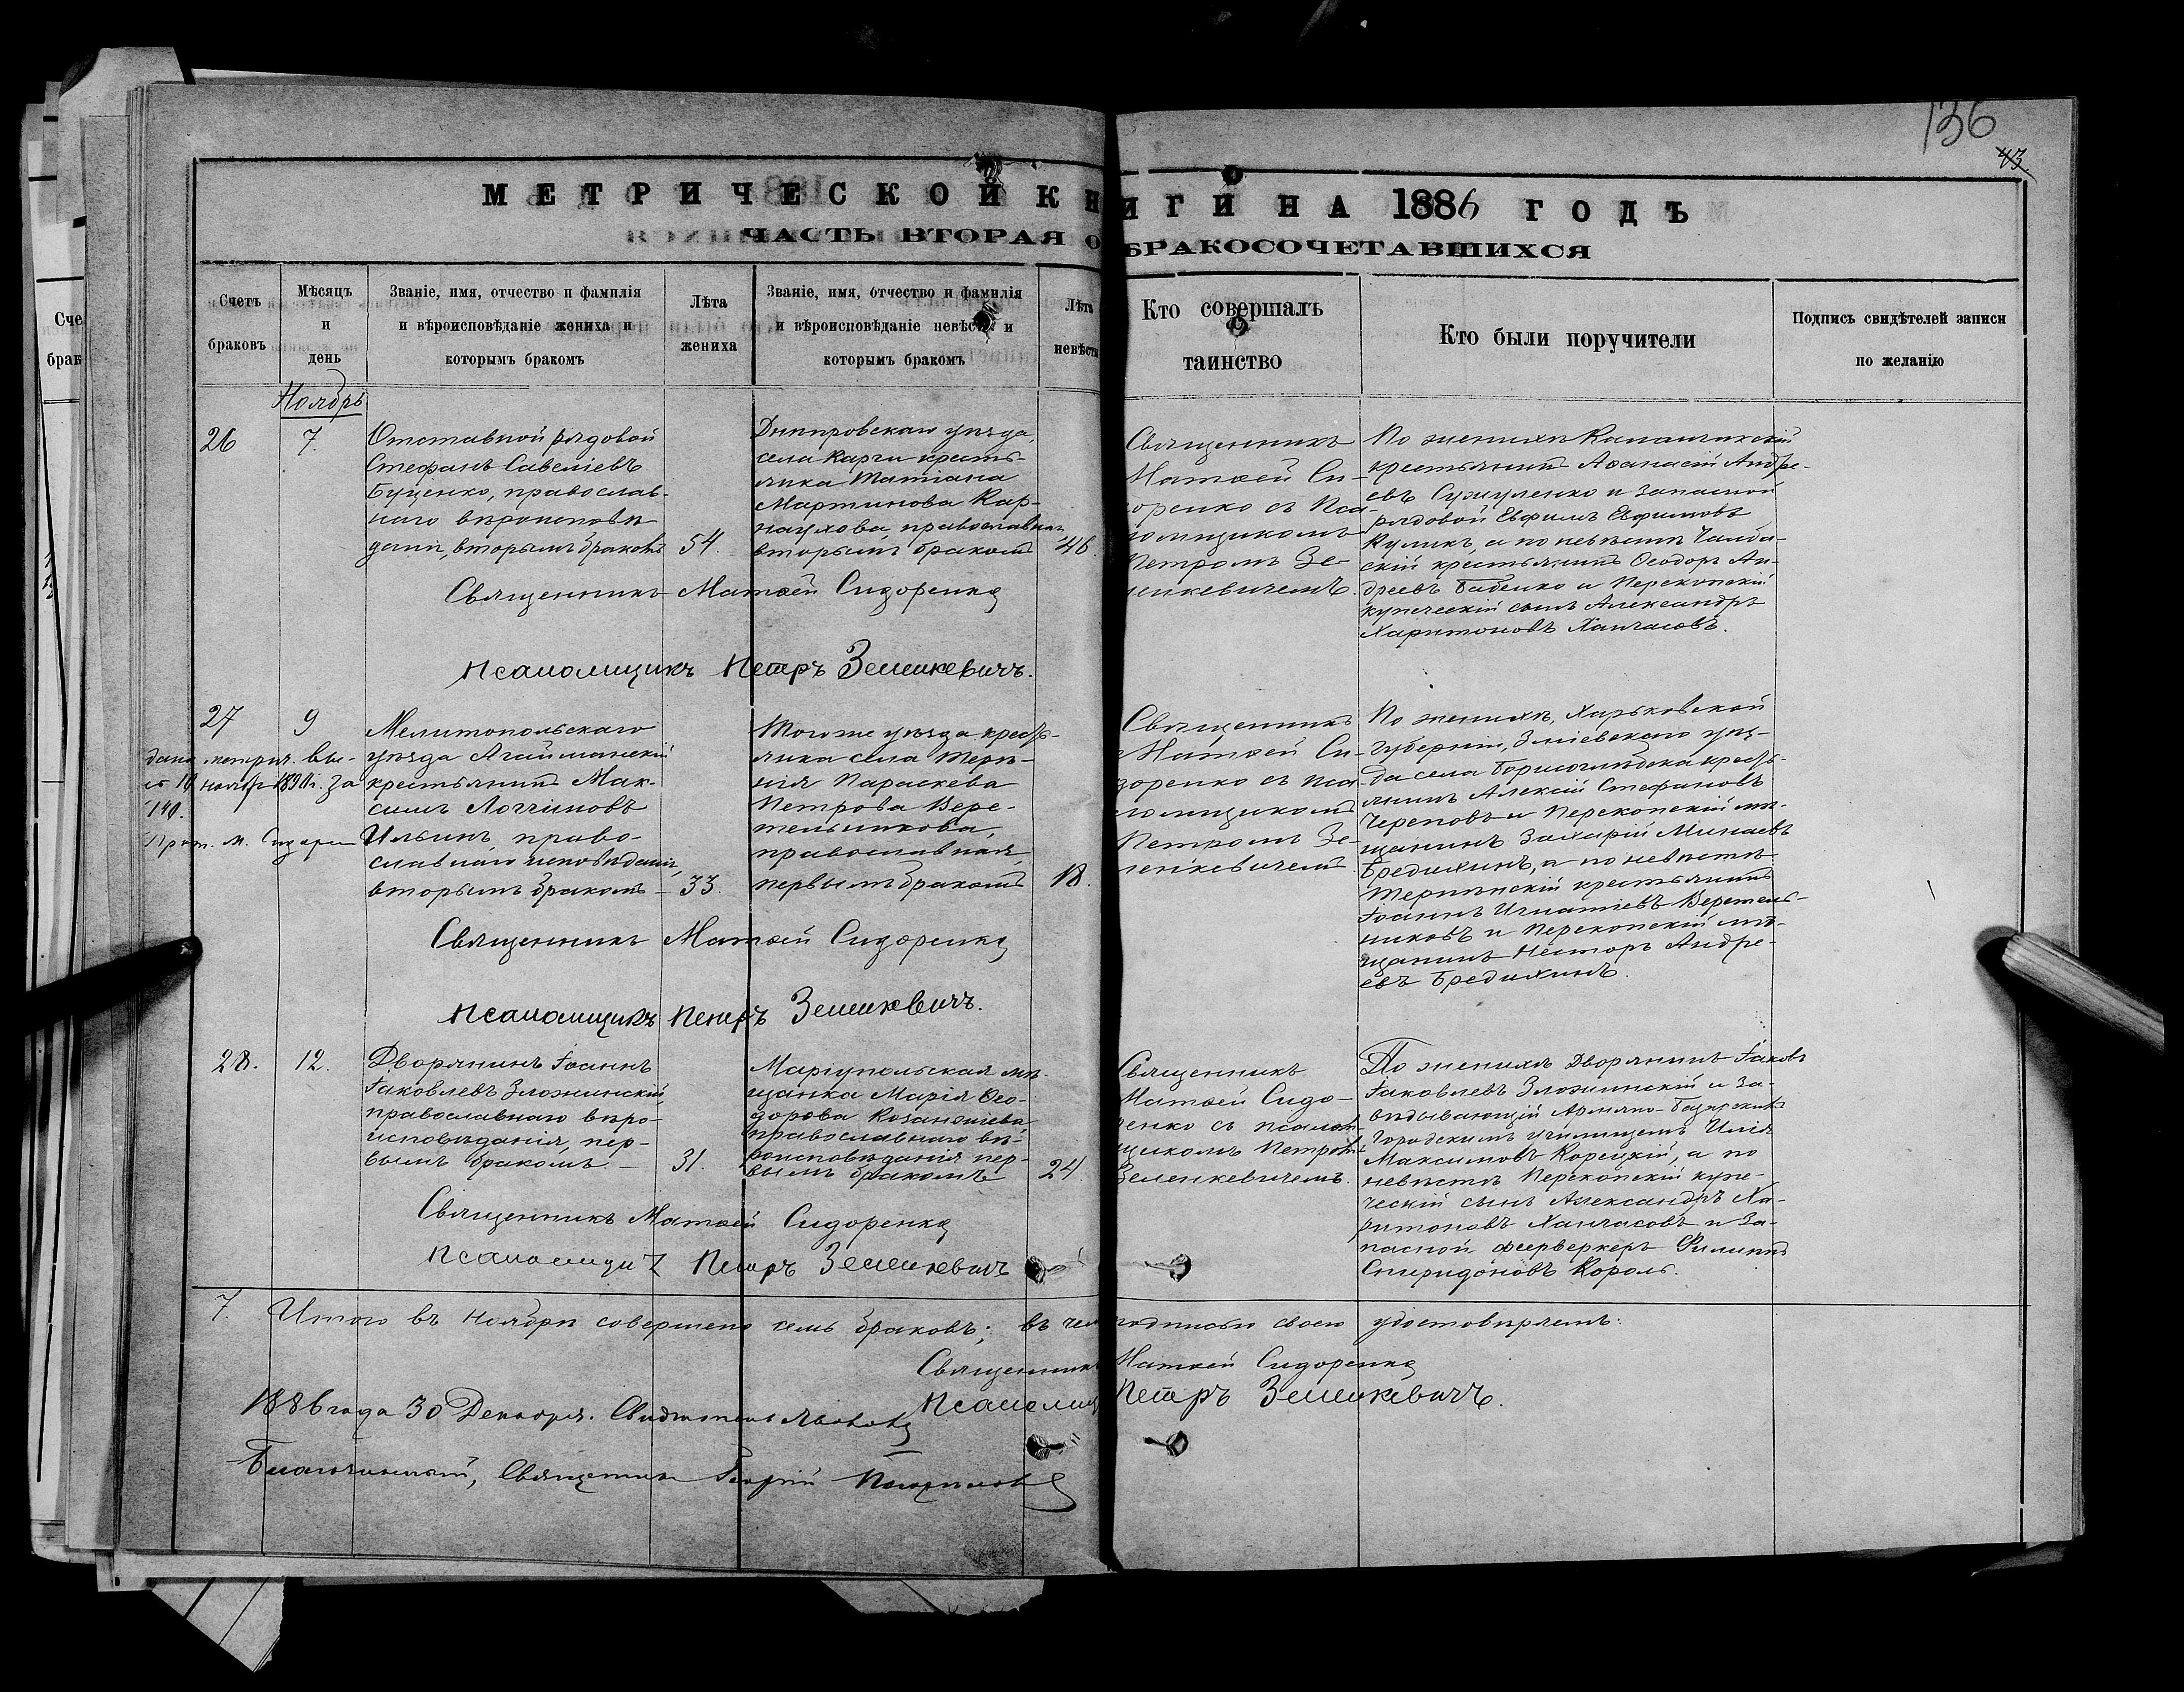 136
43
МЕТРИЧЕСКОЙ КНИГИ НА 1886 ГОДЪ
ЧАСТЬ ВТОРАЯ О БРАКОСОЧЕТАВШИХСЯ
Счетъ
браковъ
Мѣсяцъ
и
день
Званіе, имя, отчество и фамилія
и вѣроисповѣданіе жениха и
которымъ бракомъ
Лѣта
жениха
Званіе, имя, отчество и фамилія
и вѣроисповѣданіе невѣсты и
которымъ бракомъ
Лѣта
невѣсты
Кто совершалъ
таинство
Кто были поручители
Подпись свидѣтелей записи
по желанію
Ноябрь
26
7.
Отставной рядовой
Стефанъ Савеліевъ
Буценко, православ-
наго вѣроисповѣ
данія, вторымъ бракомъ
54.
Днѣпровскаго уѣзда,
села Карги кресть-
янка Татіана
Мартинова Кар-
наухова, православная
вторымъ бракомъ
46.
Священникъ
Матѳей Си-
доренко съ Пса-
ломщикомъ
Петромъ Зе-
ленкевичемъ.
По женихѣ Каланчакскій
крестьянинъ Аѳанасій Андре-
евъ и запасной
рядовой Евфимъ Евфимовъ
Куликъ, а по невѣстѣ
крестьянинъ Ѳеодоръ Ан-
дреевъ Бабенко и Перекопскій
купеческій сынъ Александръ
Харитоновъ Ханчасовъ.
Священникъ Матѳей Сидоренко
Псаломщикъ Петръ Зеленкевичъ.
27
9
Мелитопольскаго
уѣзда Агайманскій
крестьянинъ Мак-
симъ Логгиновъ
Ильинъ, право-
славнаго исповѣданія,
вторымъ бракомъ
33.
дана метрич. вы-
ноября г. за
140.
Прот. М. Сидорен
Того же уѣзда кресть-
янка села Терпѣ-
нія Параскева
Петрова Вере-
тельникова,
православная,
первымъ бракомъ
18.
Священникъ
Матѳей Си-
доренко съ пса
ломщикомъ
Петромъ Зе-
ленкевичемъ
По женихѣ, Харьковской
губерніи, Зміевскаго уѣз-
да села кресть-
янинъ Алексій Стефановъ
Череповъ и Перекопскій мѣ-
щанинъ Захарій Минаевъ
Бредихинъ, а по невѣстѣ
Терпѣнскій крестьянинъ
Іоаннъ Игнатіевъ Веретель-
никовъ и Перекопскій мѣ-
щанинъ Несторъ Андре-
евъ Бредихинъ.
Священникъ Матѳей Сидоренко
Псаломщикъ Петръ Зеленкевичъ.
28.
12.
Дворянинъ Іоаннъ
Іаковлевъ Зложинскій
православнаго вѣро-
исповѣданія, пер-
вымъ бракомъ
31.
Маріупольская мѣ-
щанка Марія Ѳео-
дорова
православнаго вѣ-
роисповѣданія пер-
вымъ бракомъ
24.
Священникъ
Матѳей Сидо-
ренко съ псалом
щикомъ Петромъ
Зеленкевичемъ.
По женихѣ Дворянинъ Іаковъ
Іаковлевъ Зложинскій и за-
вѣдывающій Армяно-Базарскимъ
Городскимъ училищемъ Илія
Максимовъ Корецкій, а по
невѣстѣ Перекопскій купе-
ческій сынъ Александръ Ха-
ритоновъ Ханчасовъ и за-
пасной фейерверкеръ Филиппъ
Спиридоновъ Король.
Священникъ Матѳей Сидоренко
Псаломщикъ Петръ Зеленкевичъ
7. Итого въ Ноябрѣ совершено семь браковъ; въ чемъ подписью своею удостовѣряемъ:
Священникъ Матѳей Сидоренко
Псаломщ Петръ Зеленкевичъ.
1886 года 30 Декабря. Свидѣтельствовалъ
Благочинный, Священникъ Георгій